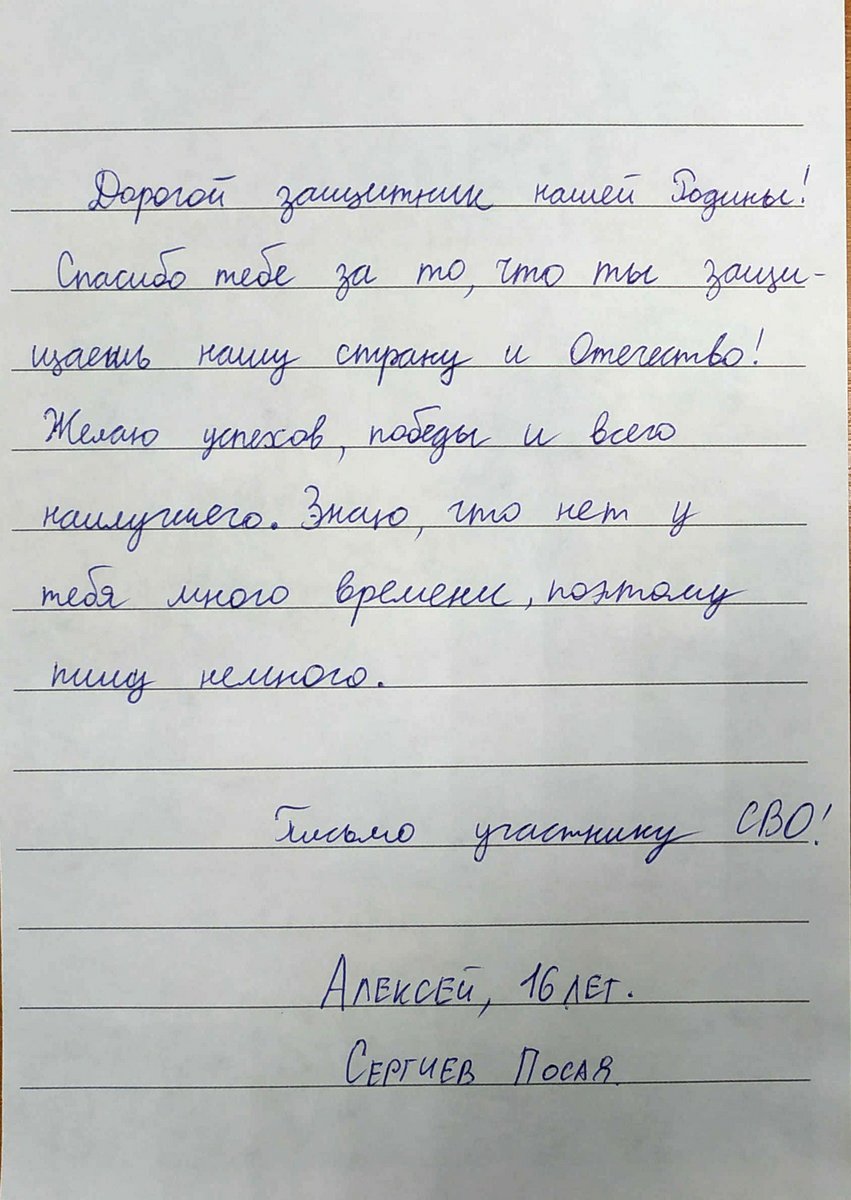 Дорогой защитник нашей Родины!
Спасибо тебе за то, что ты защи-
щаешь нашу страну и Отечество!
Желаю успехов, победы и всего
наилучшего. Знаю, что нет у
тебя много времени, поэтому
пишу немного.
Письмо участнику СВО!
Алексей, 16 лет.
Сергиев Посад